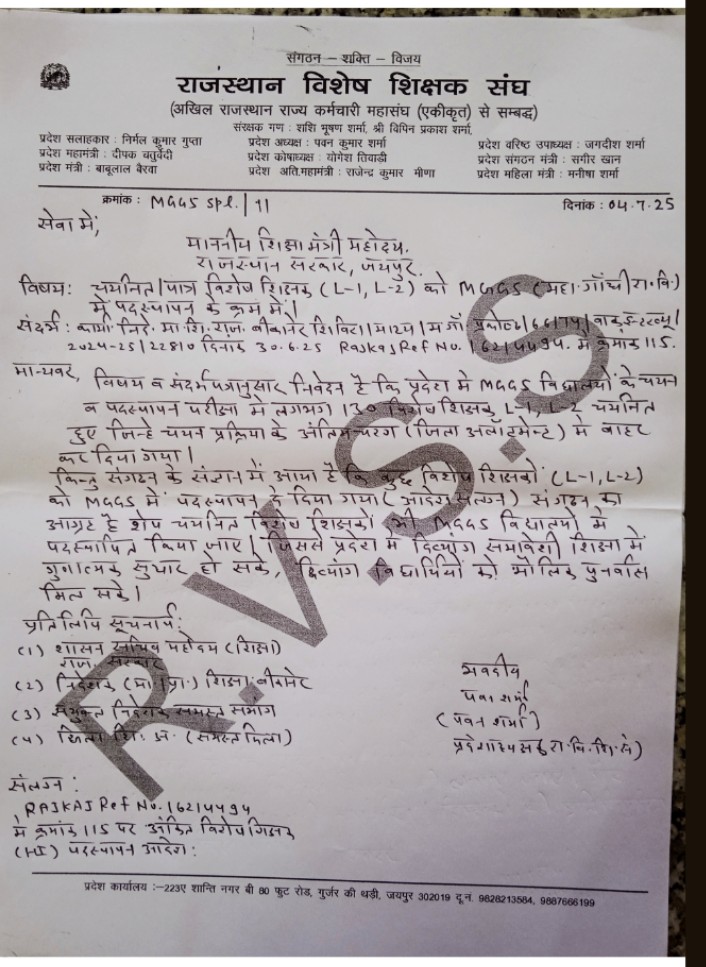 संगठन – शक्ति – विजय
राजस्थान विशेष शिक्षक संघ
(अखिल राजस्थान राज्य कर्मचारी महासंघ (एकीकृत) से सम्बद्ध)
संरक्षक गण : शशि भूषण शर्मा, श्री विपिन प्रकाश शर्मा,
प्रदेश सलाहकार : निर्मल कुमार गुप्ता प्रदेश अध्यक्ष : पवन कुमार शर्मा प्रदेश वरिष्ठ उपाध्यक्ष : जगदीश शर्मा
प्रदेश महामंत्री : दीपक चतुर्वेदी प्रदेश कोषाध्यक्ष : योगेश तिवाड़ी प्रदेश संगठन मंत्री : सगीर खान
प्रदेश मंत्री : बाबूलाल बैरवा प्रदेश अति.महामंत्री : राजेन्द्र कुमार मीणा प्रदेश महिला मंत्री : मनीषा शर्मा
क्रमांक : MGGS Spl. / 11 दिनांक : 04.7.25
सेवा में,
माननीय शिक्षा मंत्री महोदय.
राजस्थान सरकार, जयपुर.
विषय: चयनित/पात्र विशेष शिक्षक (L-1, L-2) को MGGS (महा. गाँधी रा. वि.)
में पदस्थापन के क्रम में।
संदर्भ : कार्या. निदे. मा. शि. राज. बीकानेर शिविरा/माध्य/म गाँ
2024-25/22810 दिनांक 30.6.25 RajKaj Ref No. 16214494. में क्रमांक 115.
मान्यवर, विषय व संदर्भ पत्रानुसार निवेदन है कि प्रदेश में MGGS विद्यालयों के चयन
व पदस्थापन परीक्षा में लगभग 130 विशेष शिक्षक L-1, L-2 चयनित
हुए जिन्हे चयन प्रक्रिया के अंतिम चरण (जिला अलॉटमेन्ट) में बाहर
कर दिया गया।
किन्तु संगठन के संज्ञान में आया है कि कुछ विशेष शिक्षकों (L-1, L-2)
को MGGS में पदस्थापन दे दिया गया (आदेश संलग्न) संगठन का
आग्रह है शेष चयनित विशेष शिक्षकों भी MGGS विद्यालयों में
पदस्थापित किया जाए। जिससे प्रदेश में दिव्यांग समावेशी शिक्षा में
गुणात्मक सुधार हो सके, दिव्यांग विद्यार्थियों को मौलिक पुनर्वास
मिल सके।
प्रतिलिपि सूचनार्थ:
(1) शासन सचिव महोदय (शिक्षा)
राज. सरकार
(2) निदेशक (मा./प्रा.) शिक्षा बीकानेर
(3) संयुक्त निदेशक समस्त संभाग
(4) जिला शि. अ. (समस्त जिला)
भवदीय
पवन शर्मा
(पवन शर्मा)
प्रदेशाध्यक्ष रा. वि. शि. सं)
संलग्न :
RAJKAJ Ref No. 16214494
में क्रमांक 115 पर अंकित विशेष शिक्षक
(HI) पदस्थापन आदेश :
प्रदेश कार्यालय :–223ए शान्ति नगर बी 80 फुट रोड, गुर्जर की थड़ी, जयपुर 302019 दू.नं. 9828213584, 9887666199
R.V.S.S